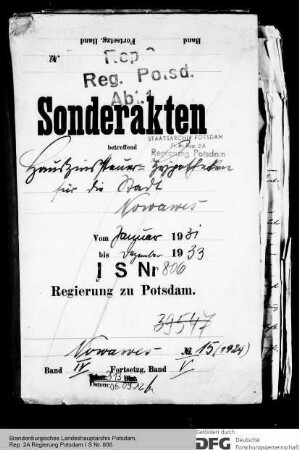 Fortsetzg. Band
Band
Rep 2
Reg. Potsd.
Abt. I
Sonderakten
betreffend
STAATSARCHIV POTSDAM
Pr. Br. Rep. 2A
Regierung Potsdam
Hauszinssteuer-Hypotheken
für die Stadt
Nowawes
Vom Januar 1931
bis Dezember 1933
I S Nr 806
Regierung zu Potsdam.
39547
Nowawes № 15 (1924)
Band IV Fortsetzg. Band V
Brandenburgisches Landeshauptarchiv Potsdam,
Rep. 2A Regierung Potsdam I S Nr. 806
Gefördert durch
DFG Deutsche
Forschungsgemeinschaft